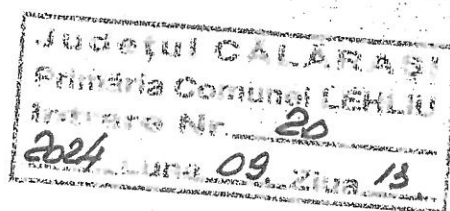 Județul CĂLĂRAȘI
Primăria Comunei LEHLIU
Intrare Nr. 20
2024 Luna 09 Ziua 13